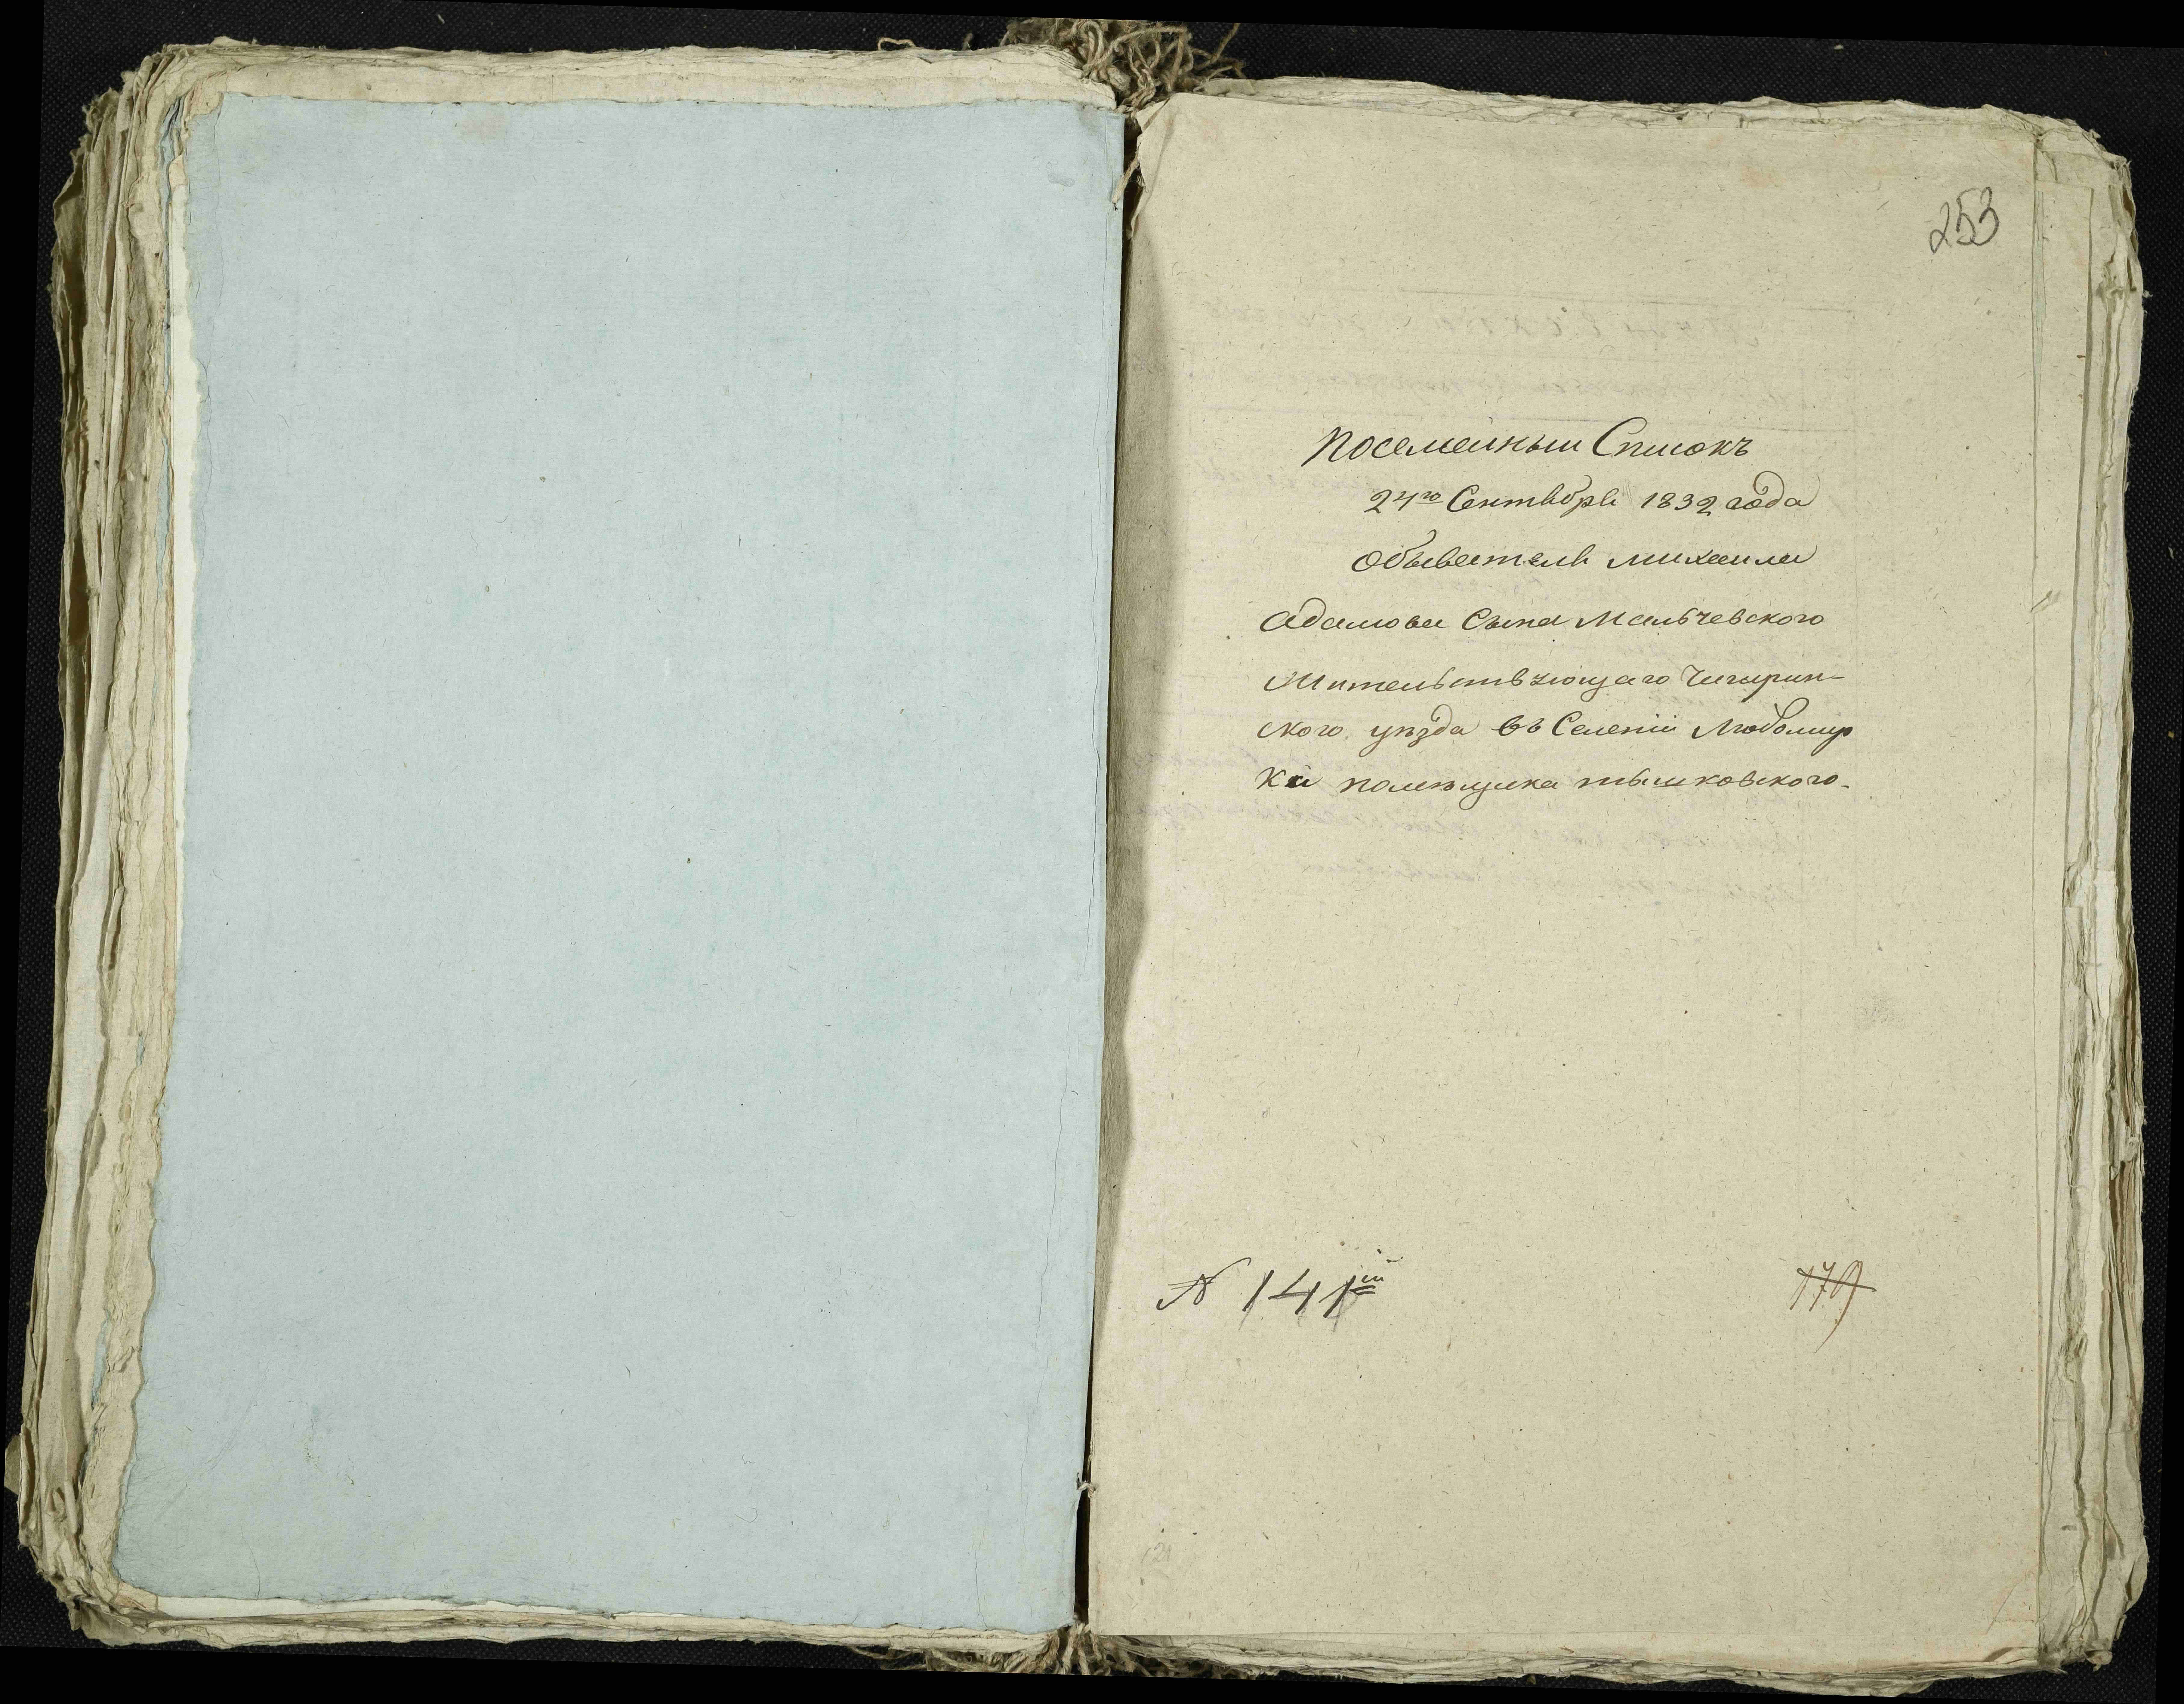 253
Посемейный Списокъ
24го Сентября 1832 года
Обывателя Михаила
Адамова Сына Мальчевского
Жительствующаго Чигирин-
ского уѣзда въ Селеніи Любомир
ки помѣщика тышковского.
N 141й
179